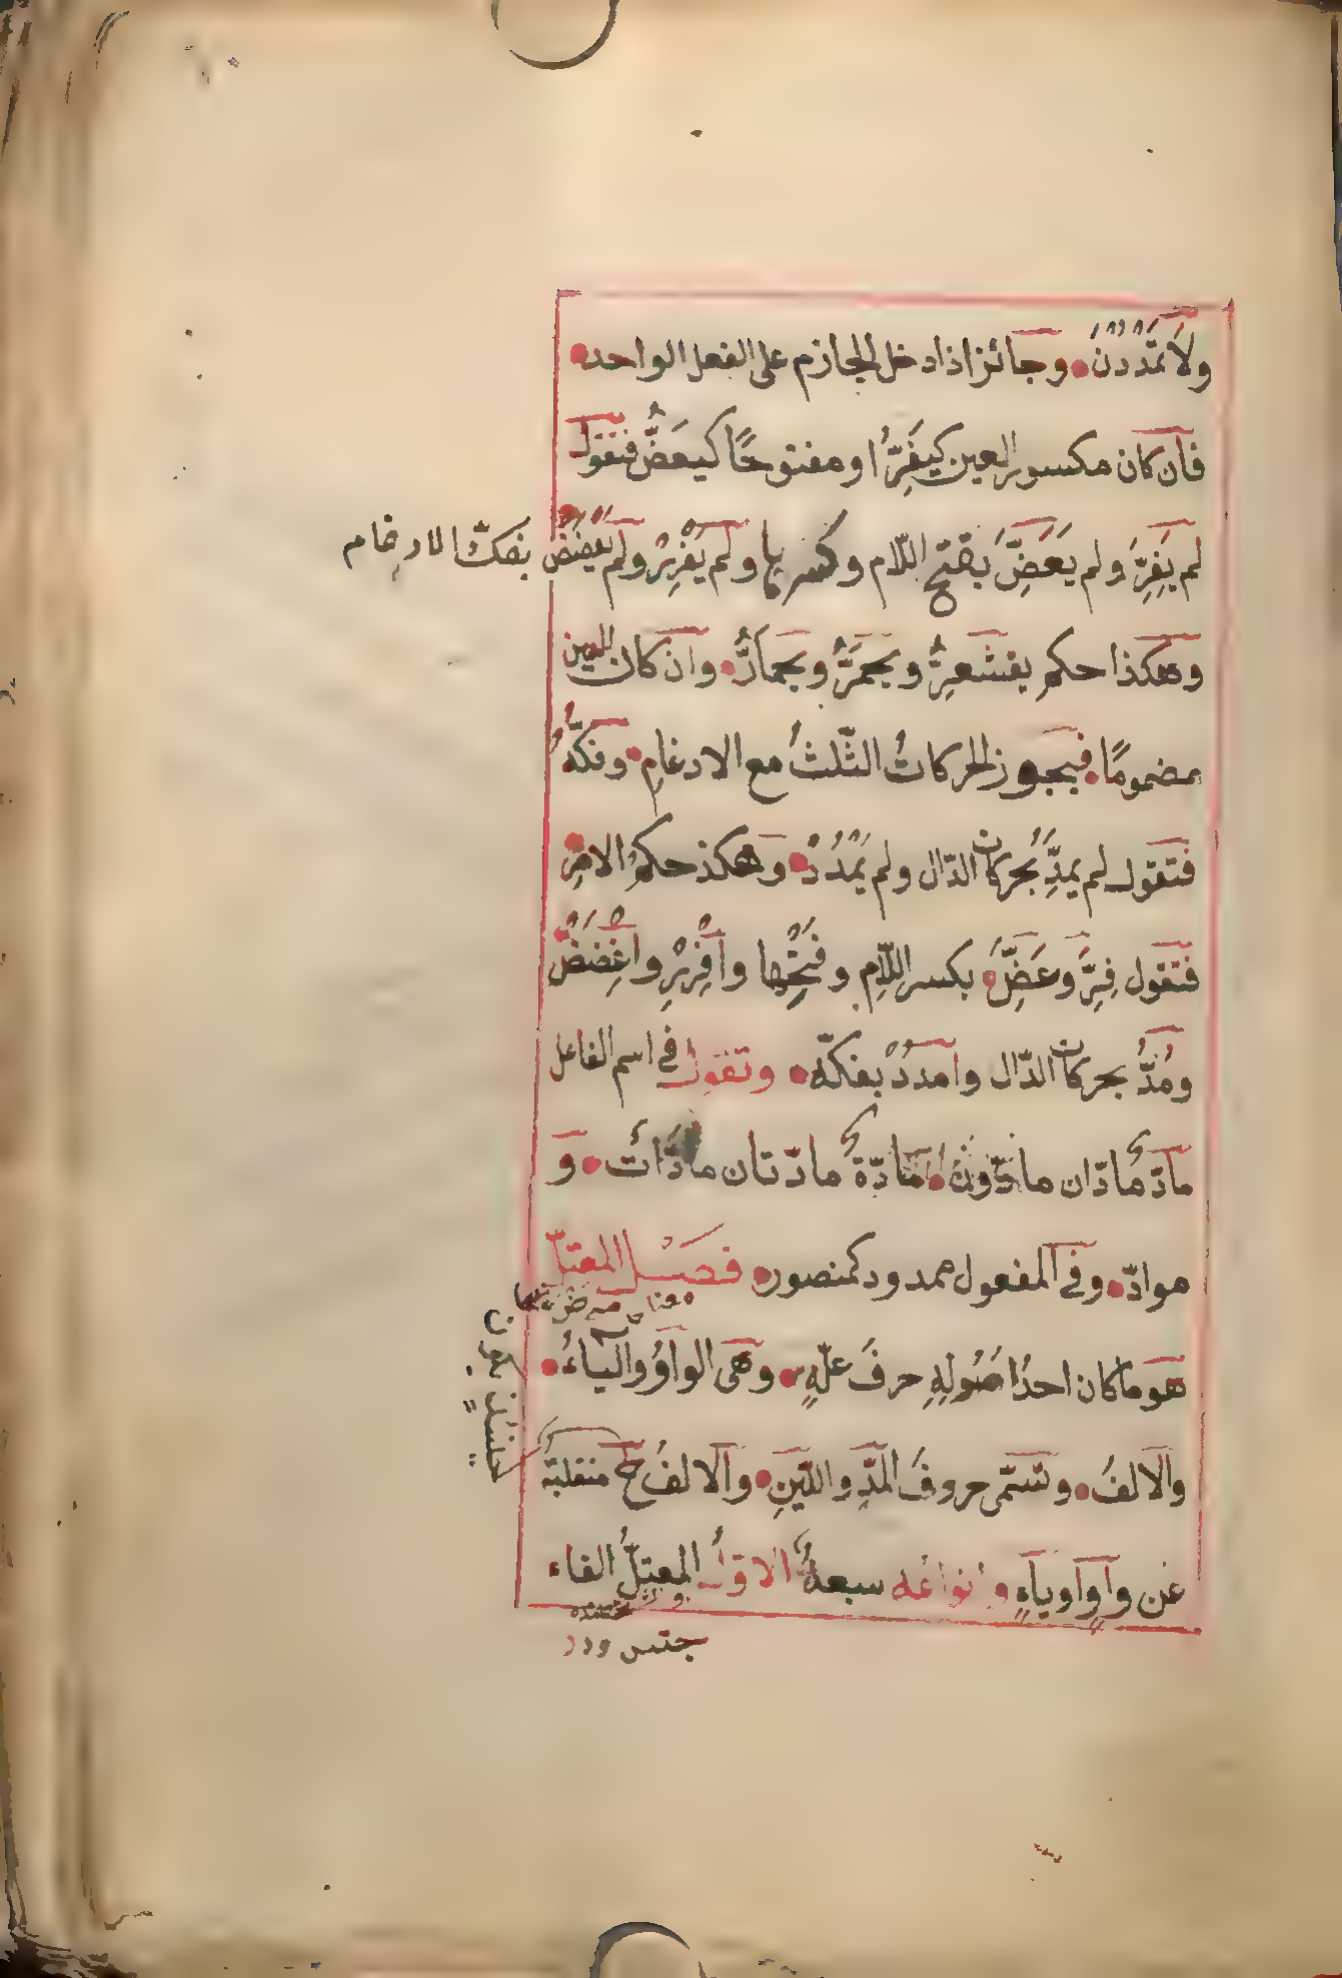 ولا تمددن وجائز اذا دخل الجازم على الفعل الواحد
فان كان مكسور العين كيفرّ او مفتوحًا كيعضّ فتقول
لم يفرّ ولم يعضّ بفتح اللّام وكسرها ولم يفرر ولم يعضض بفكّ الادغام
وهكذا حكم يقشعرّ ويحمرّ ويحمارّ وان كان العين
مضمومًا فيجوز الحركات الثّلث مع الادغام وفكّه
فتقول لم يمدّ بحركات الدّال ولم يمدد وهكذ حكم الامر
فتقول فرّ وعضّ بكسر اللّام وفتحها وافرر واعضض
ومدّ بحركات الدّال وامدد بفكّه وتقول فى اسم الفاعل
مادّ مادّان مادّون مادّة مادّتان مادّات و
موادّ وفى المفعول ممدود كمنصور فصل المعتلّ
هو ما كان احد اصوله حرف علّة وهى الواو والياء
والالف وتسمّى حروف المدّ واللّين والالف ح منقلبة
عن واو او ياء وانواعه سبعة الاوّل المعتلّ الفاء